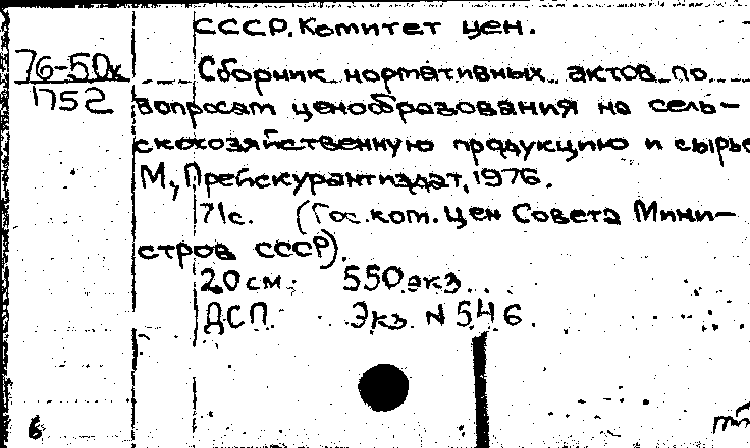 СССР. Комитет цен.
76-50к
1752
Сборник нормативных актов по
вопросам ценообразования на сель-
скохозяйственную продукцию и сырье
М., Прейскурантиздат, 1976.
71с. (Гос. ком. цен Совета Мини-
стров СССР).
20 см. 550 экз.
ДСП. Экз. N 546.
6